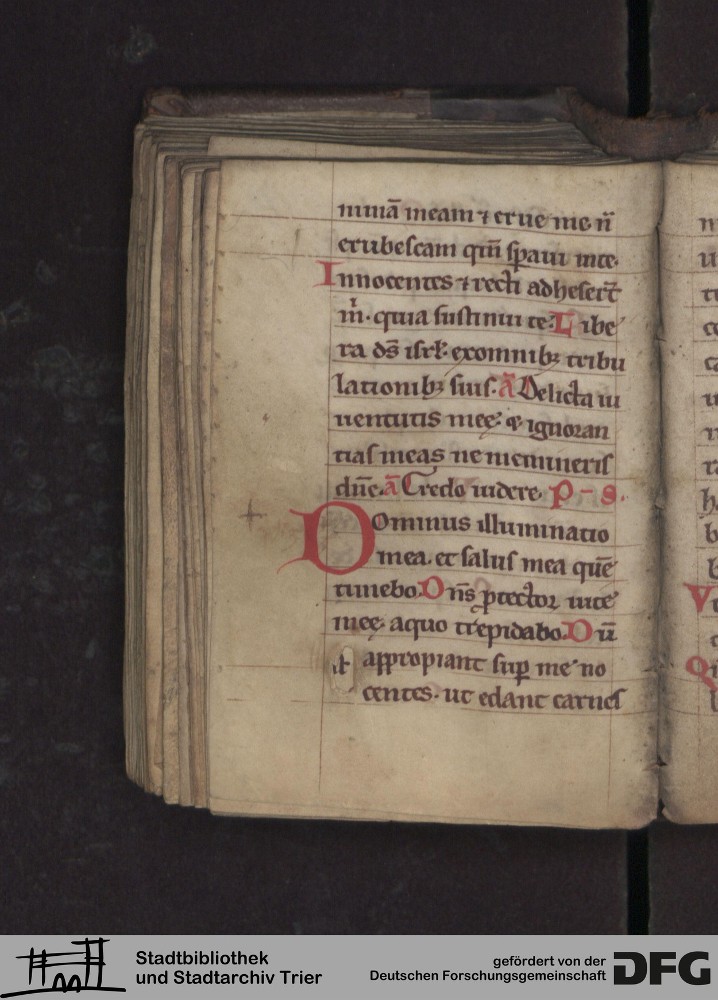 nimā meam ⁊ erue me. n̄
erubescam qm̄ speraui in te.
Innocentes ⁊ recti adheserūt
m̄. quia sustinui te. Libe
ra ds̄ isrl̄. ex omnibꝫ tribu
lationibꝫ suis. ā Delicta iu
uentutis mee. ⁊ ignoran
tias meas ne memineris
dn̄e. ā Credo uidere. p s.
Dominus illuminatio
mea. et salus mea quē
timebo. Dn̄s ꝓtector uite
meę. a quo trepidabo. Dū
appropiant suꝑ me no
centes. ut edant carnes
Stadtbibliothek
und Stadtarchiv Trier
gefördert von der
Deutschen Forschungsgemeinschaft
DFG